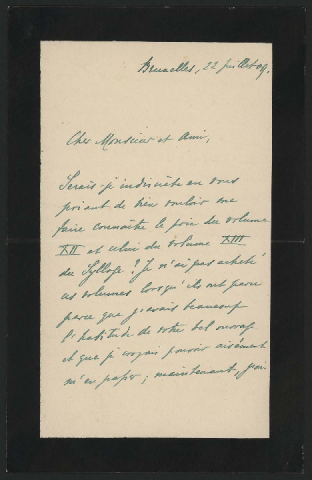 Bruxelles, 22 juillet 09.
Cher Monsieur et Ami,
Serais-je indiscrète en vous
priant de bien vouloir me
faire connaître le prix du volume
XII et celui du volume XIII
du Sylloge ? Je n'ai pas acheté
ces volumes lorsqu'ils ont paru
parce que j'avais beaucoup
l'habitude de votre bel ouvrage
et que je croyais pouvoir aisément
m'en passer ; maintenant,